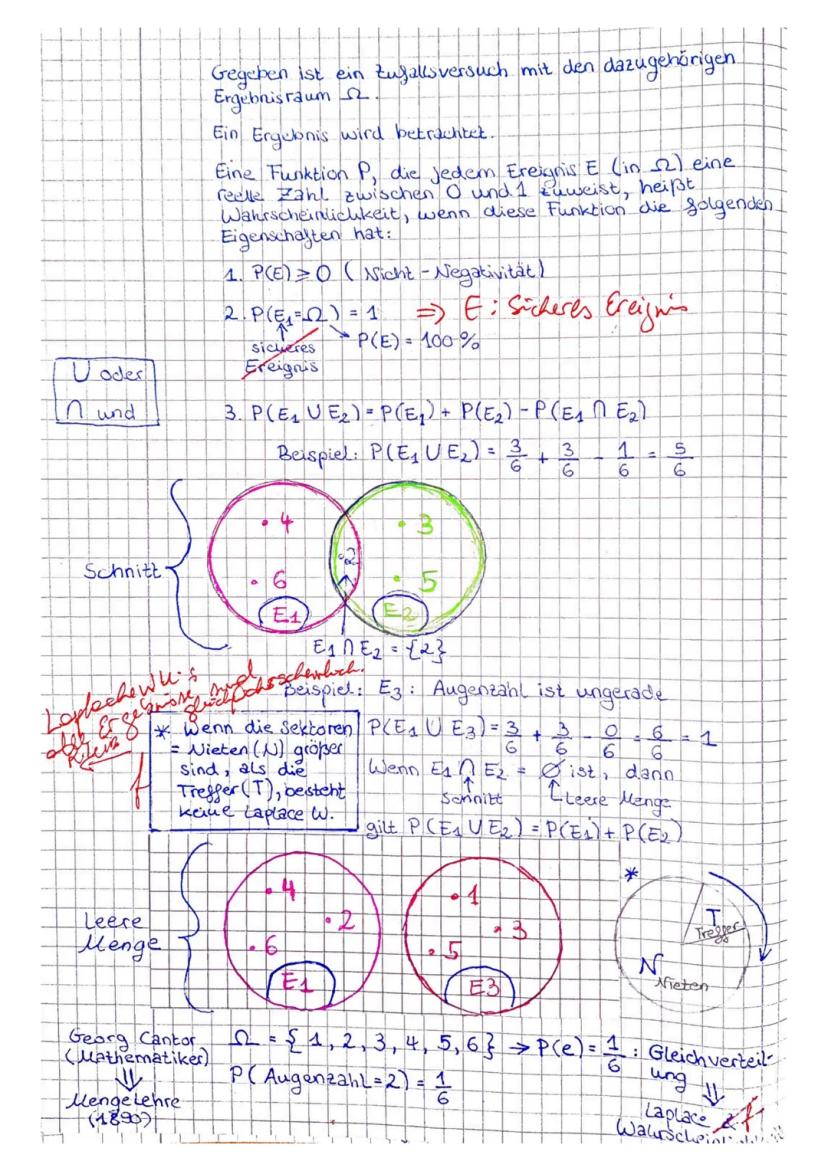 Gegeben ist ein Zufallsversuch mit den dazugehörigen
Ergebnisraum Ω.
Ein Ergebnis wird betrachtet.
Eine Funktion P, die jedem Ereignis E (in Ω) eine
reelle Zahl zwischen 0 und 1 zuweist, heißt
Wahrscheinlichkeit, wenn diese Funktion die folgenden
Eigenschaften hat:
1. P(E) ≥ 0 (Nicht-Negativität)
2. P(E₁=Ω) = 1 ⇒ E: Sicheres Ereignis
sicheres
Ereignis
P(E) = 100 %
U oder
∩ und
3. P(E₁ U E₂) = P(E₁) + P(E₂) - P(E₁ ∩ E₂)
Beispiel: P(E₁ U E₂) = 3/6 + 3/6 - 1/6 = 5/6
Schnitt
4
6
E1
2
3
5
E2
E₁ ∩ E₂ = {2}
Laplache Wk:
Ergebnisse sind
Beispiel: E₃: Augenzahl ist ungerade
* Wenn die Sektoren
= Nieten (N) größer
sind, als die
Treffer (T), besteht
keine Laplace W.
f
P(E₁ U E₃) = 3/6 + 3/6 - 0/6 = 6/6 = 1
Wenn E₁ ∩ E₂ = ∅ ist, dann
Schnitt
Leere Menge
gilt P(E₁ U E₂) = P(E₁) + P(E₂)
Leere
Menge
4
2
6
E1
1
3
5
E3
*
T
Treffer
N
Nieten
Georg Cantor
(Mathematiker)
⇓
Mengelehre
(1890)
Ω = {1, 2, 3, 4, 5, 6} → P(e) = 1/6 : Gleichverteil-
ung
P(Augenzahl = 2) = 1/6
⇓
Laplace f